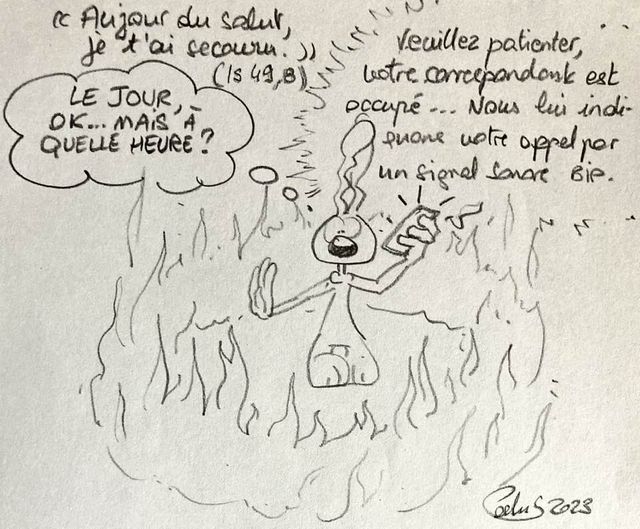 « Au jour du salut,
je t'ai secouru. »
(Is 49, 8)
LE JOUR,
OK... MAIS À
QUELLE HEURE ?
Veuillez patienter,
votre correspondant est
occupé... Nous lui indi-
quons votre appel par
un signal sonore BIP.
2023